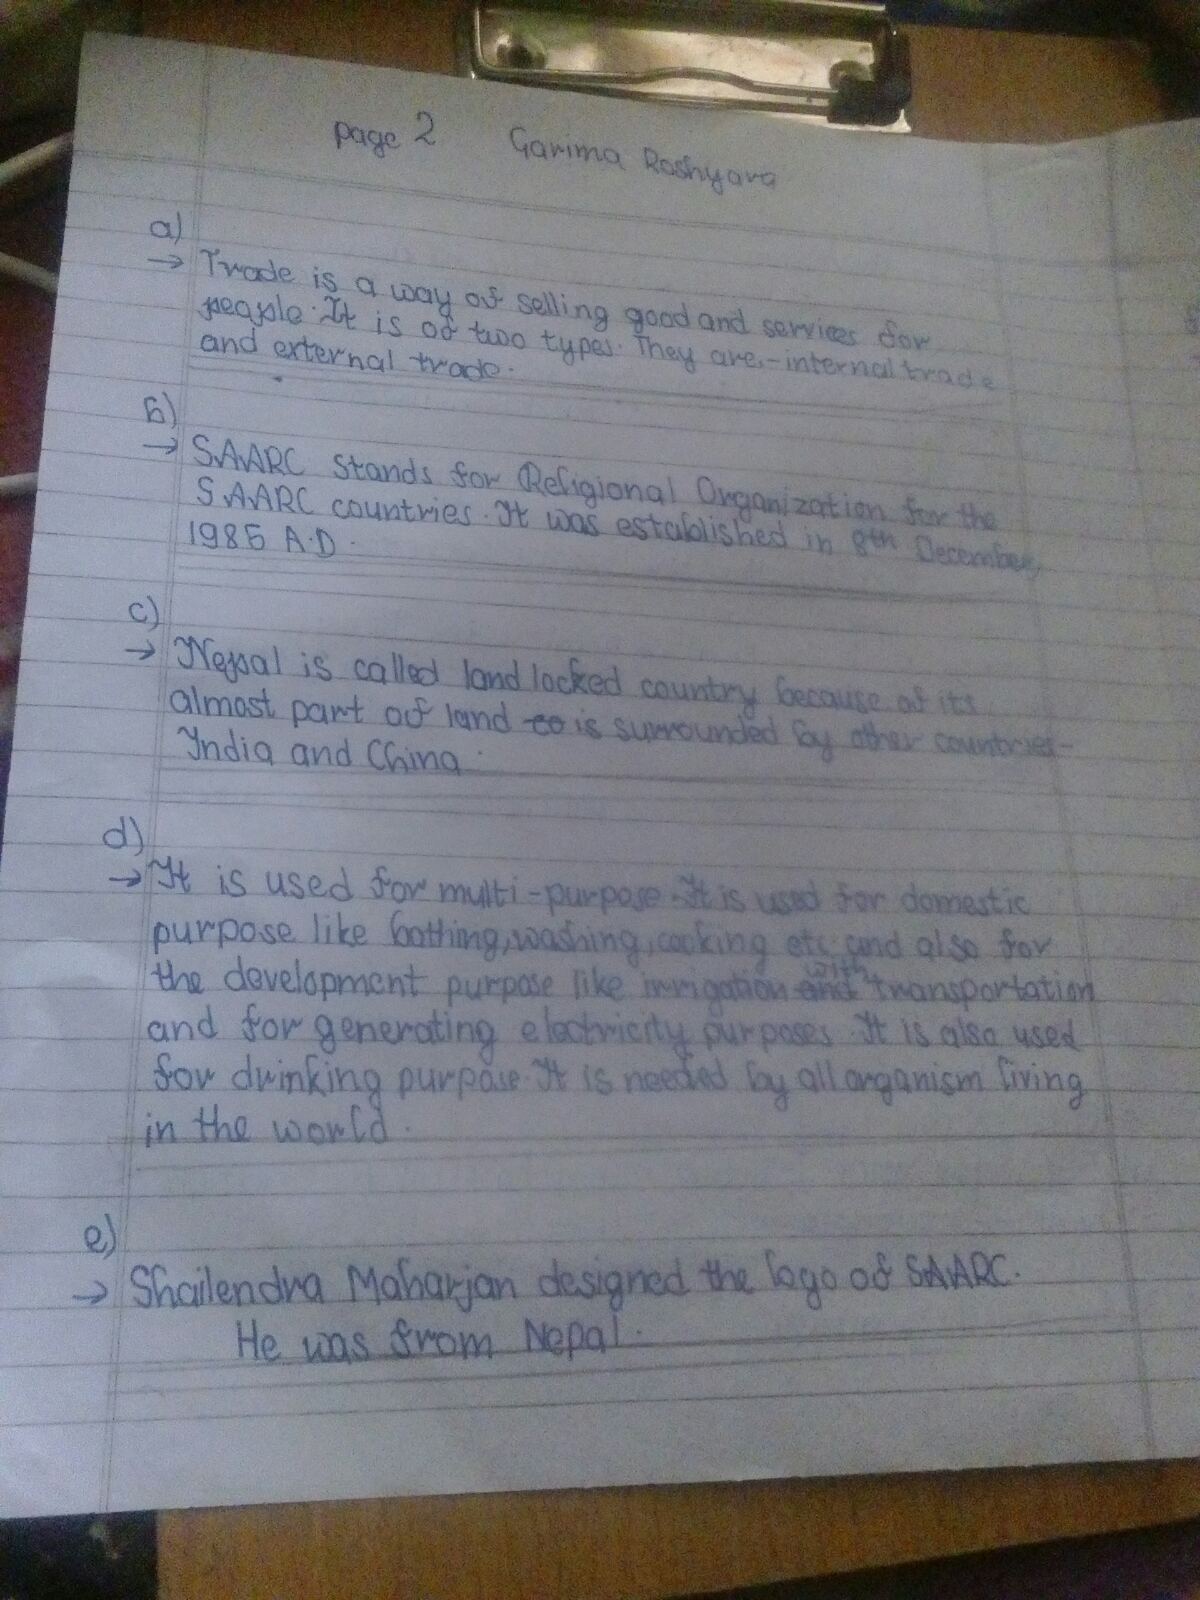 page 2 Garima Roshyara
a)
→ Trade is a way of selling good and services for
people. It is of two types. They are,-internal trade
and external trade.
b)
→ SAARC stands for Religional Organization for the
SAARC countries. It was established in 8th December,
1985 A.D.
c)
→ Nepal is called land locked country because of its
almost part of land to is surrounded by other countries-
India and China.
d)
→ It is used for multi-purpose. It is used for domestic
purpose like bathing, washing, cooking etc and also for
the development purpose like irrigation and with transportation
and for generating electricity purposes. It is also used
for drinking purpose. It is needed by all organism living
in the world.
e)
→ Shailendra Maharjan designed the logo of SAARC.
He was from Nepal.